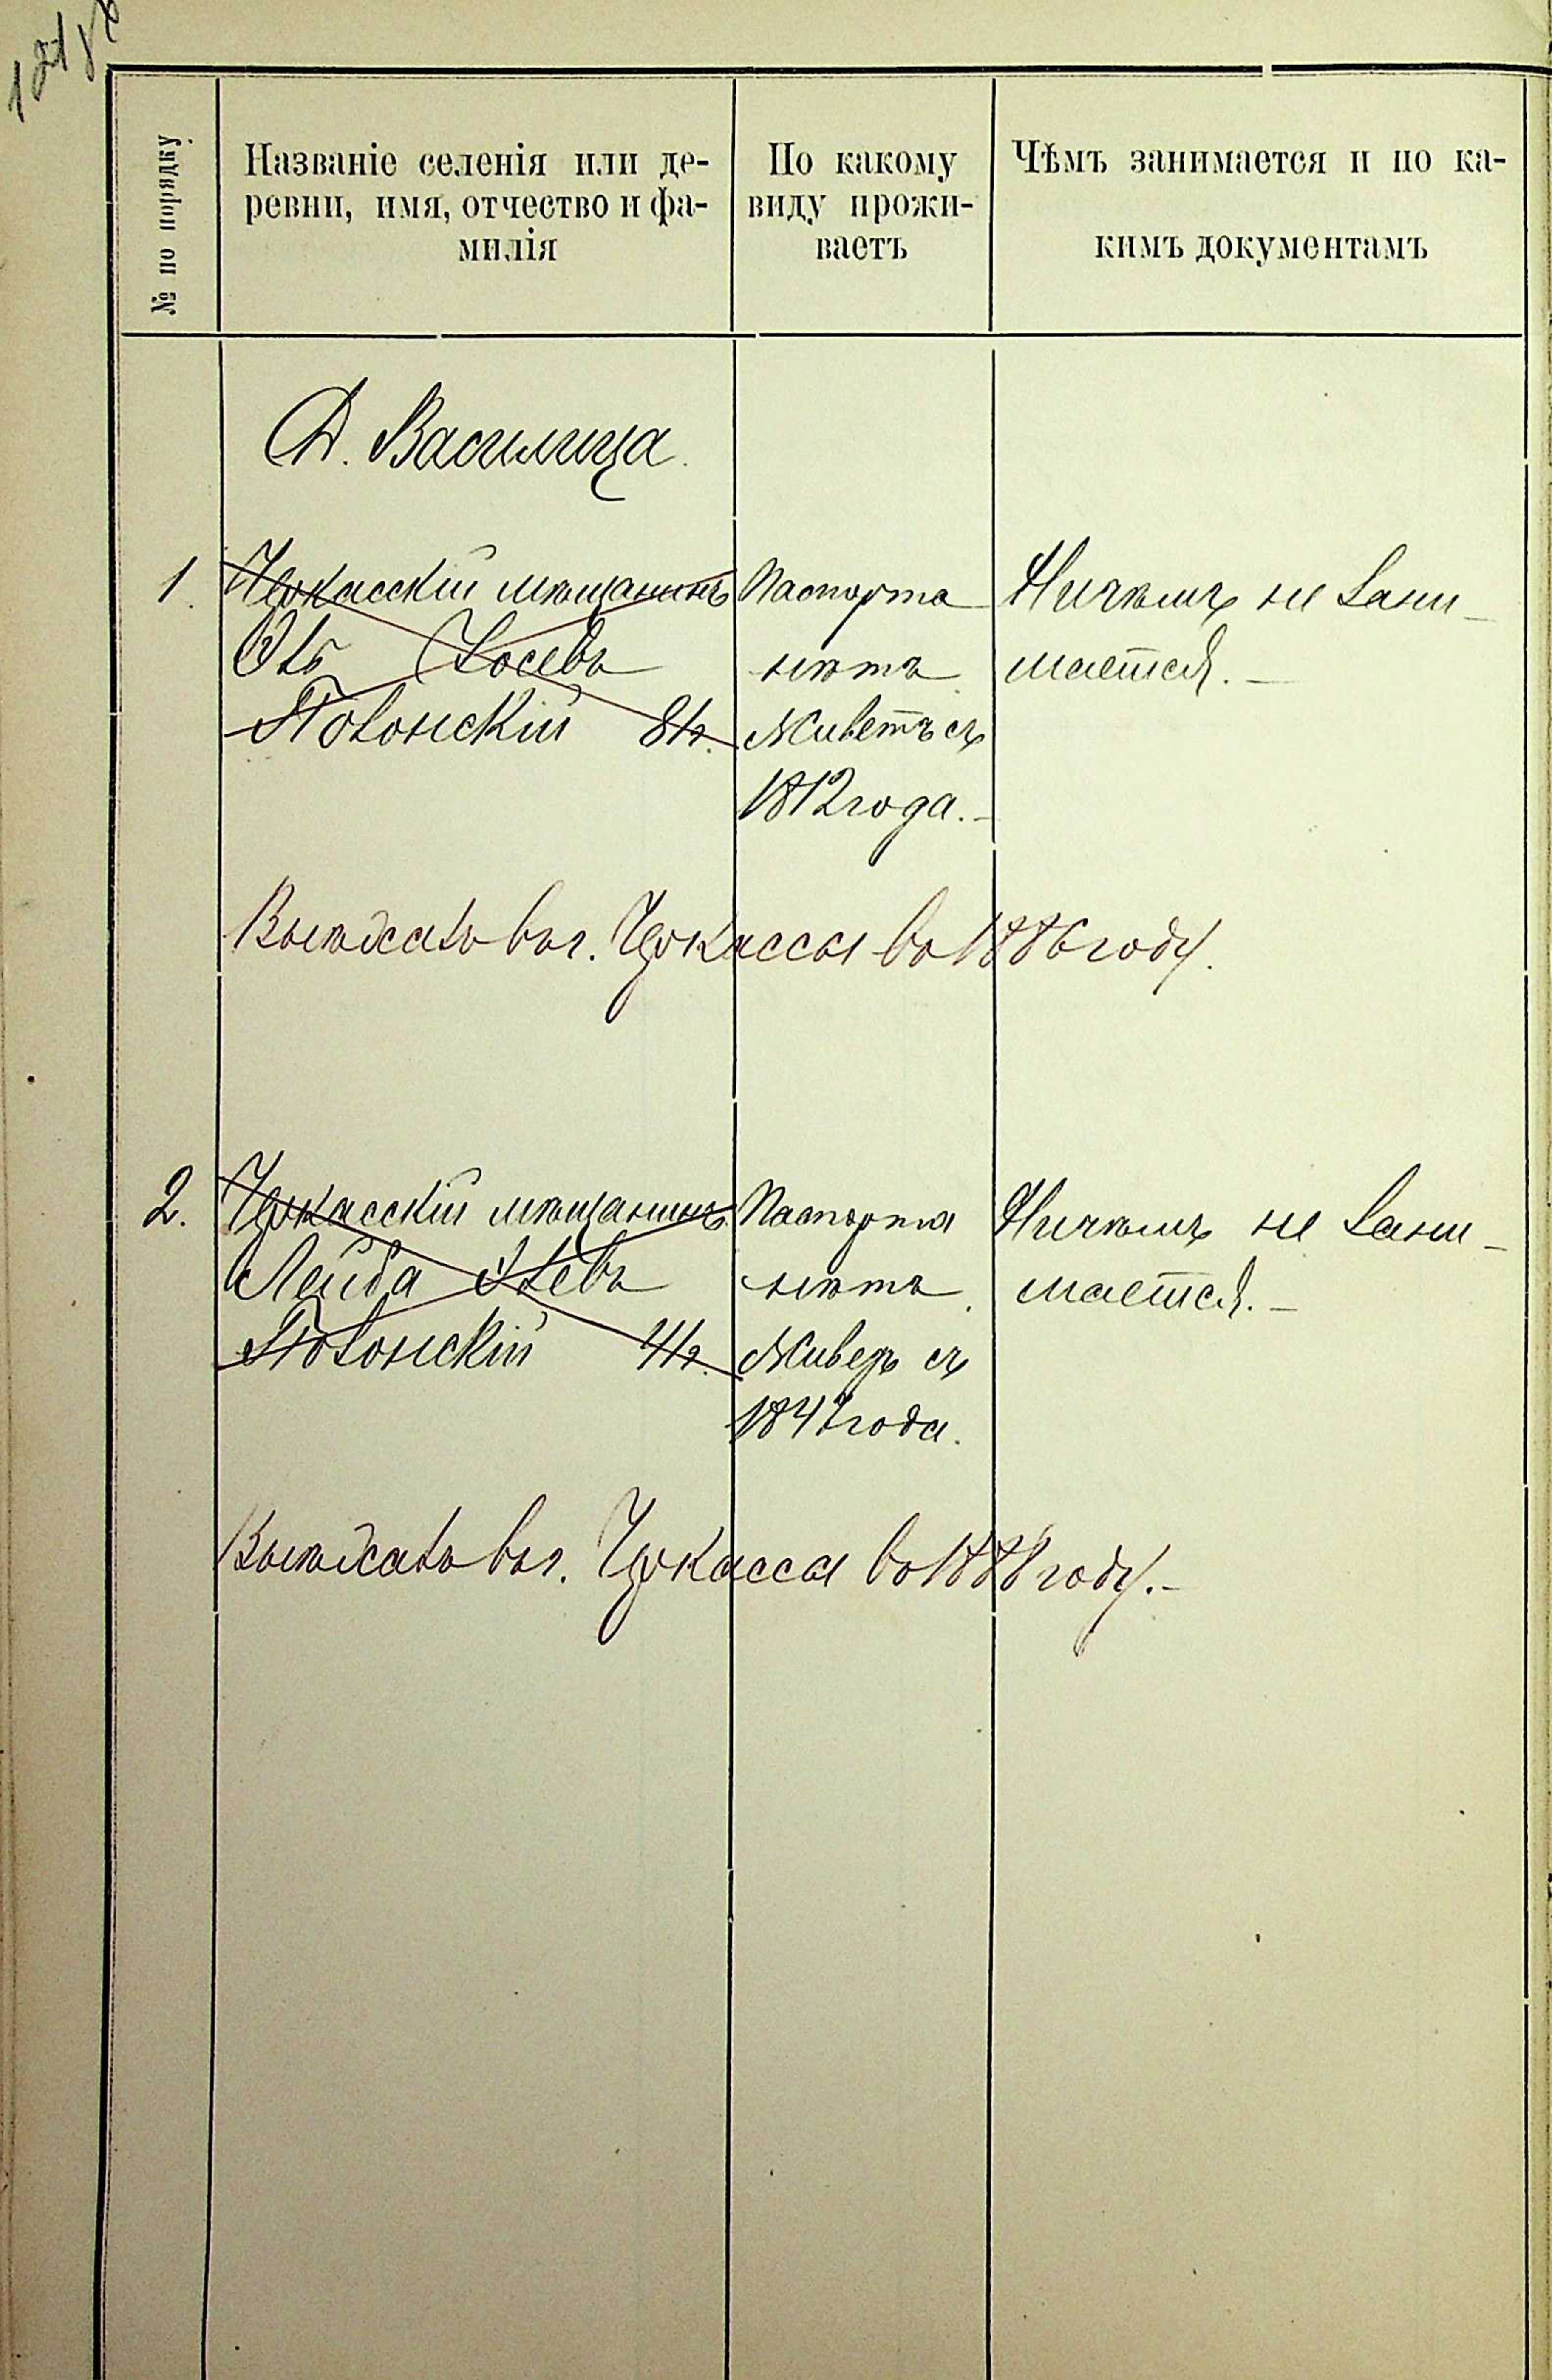 № по порядку
Названіе селенія или де-
ревни, имя, отчество и фа-
милія
По какому
виду прожи-
ваетъ
Чѣмъ занимается и по ка-
кимъ документамъ
Д. Василица.
1. Черкасскій мѣщанинъ
Іосевъ
Повонскій
Паспорта
нѣтъ.
Живетъ съ
1812 года.-
Ничѣмъ не зани-
мается.-
въ г. Черкассы въ 1886 году.
2. Черкасскій мѣщанинъ
Лейба
Повонскій
Паспорта
нѣтъ.
съ
1847 года.
Ничѣмъ не зани-
мается.-
въ г. Черкассы въ 1888 году.-